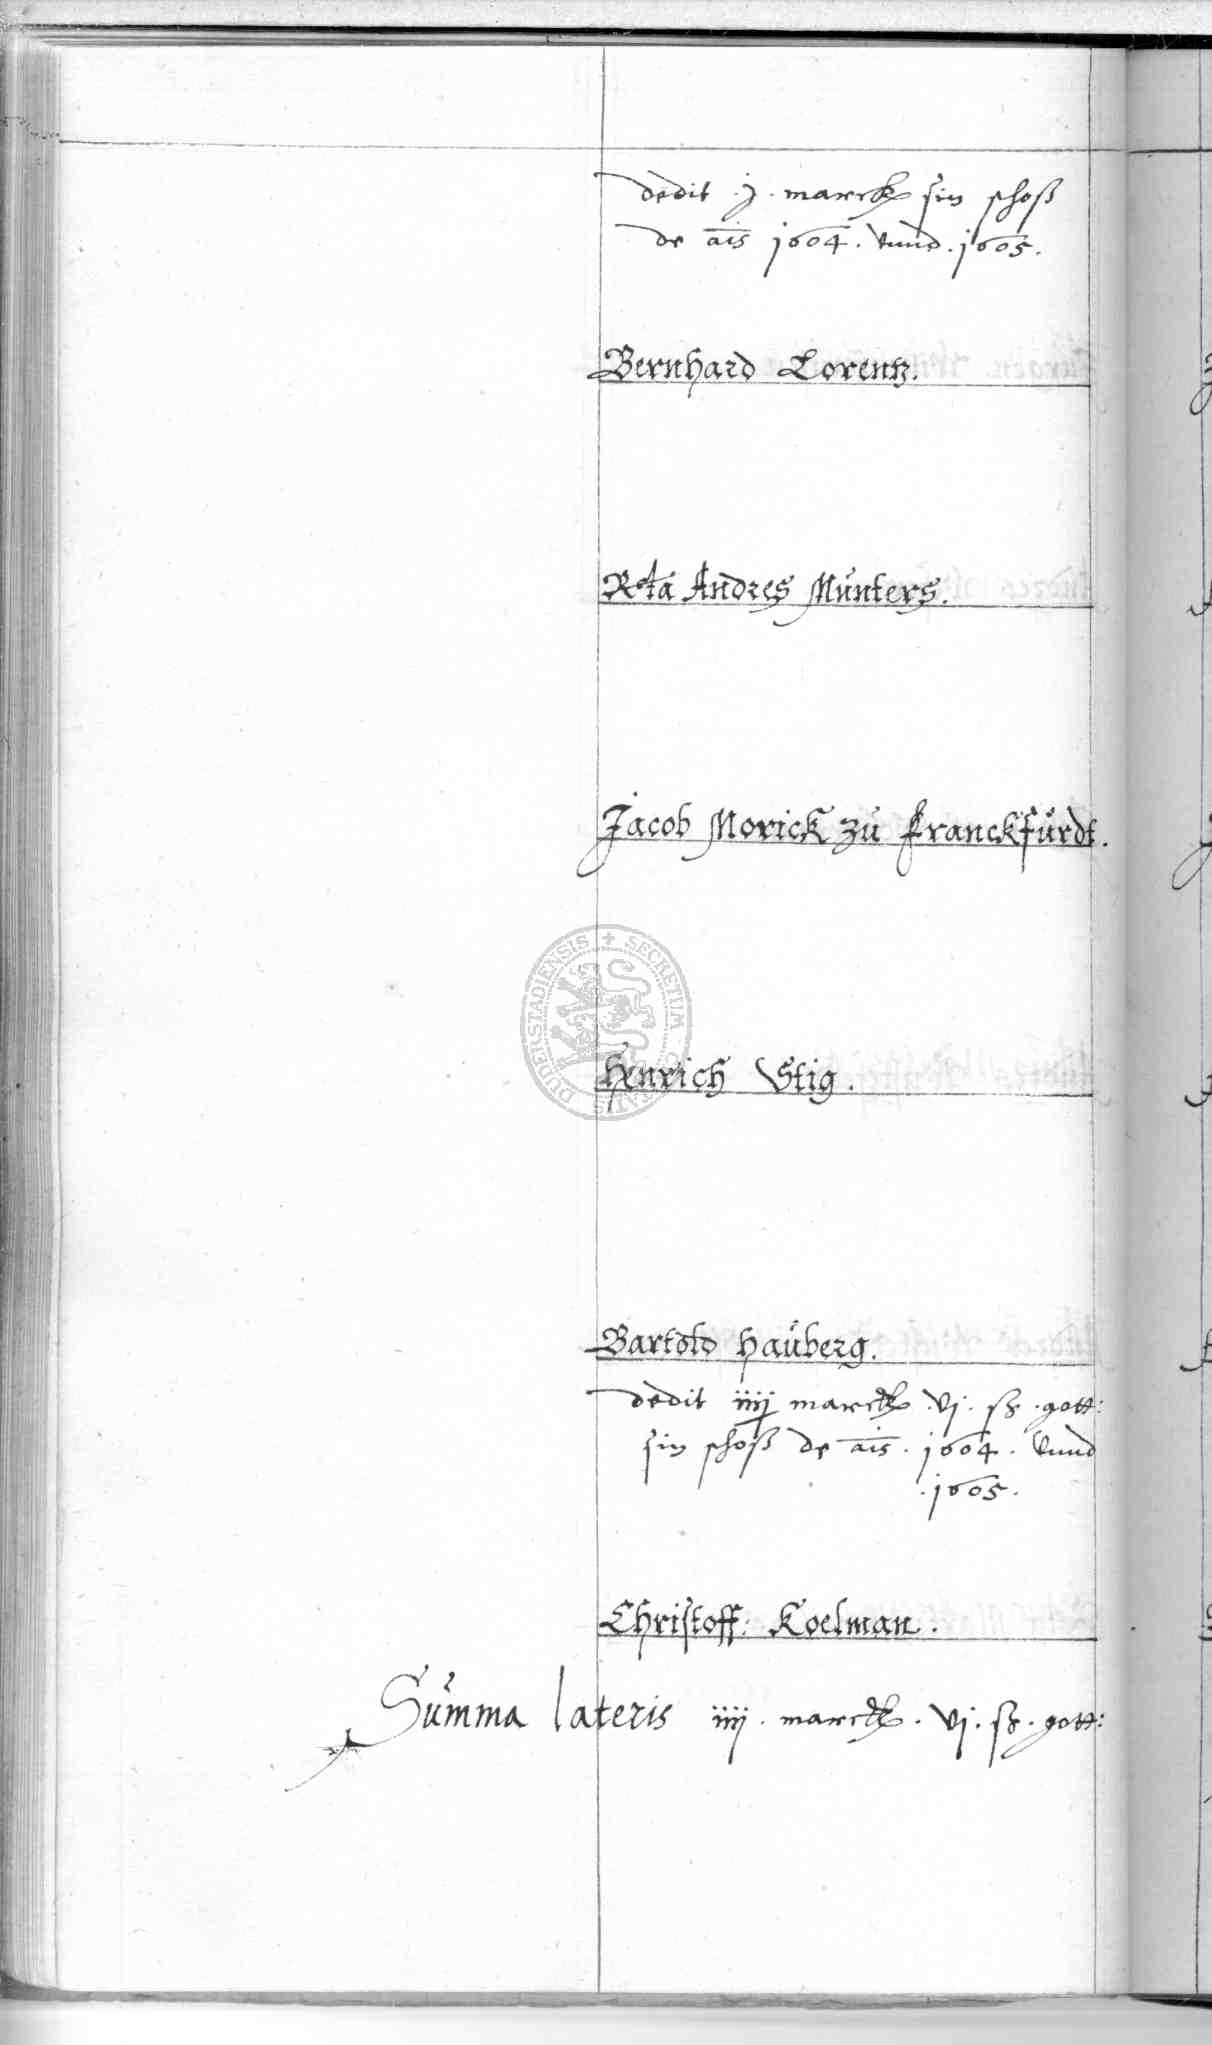 dedit .j. marck sin schoß
de ais 1604. vnnd .1605.
Bernhard Lorentz.
Rta Andres Munters.
Jacob Morick zu Franckfurdt.
Henrich Stig.
SECRETUM CIVITATIS DUDERSTADIENSIS
Bartold Hauberg.
dedit iiij marck .vj. sz. gott:
sin schoß de ais. 1604. vnnd
.1605.
Christoff: Koelman.
Summa lateris iiij. marck. vj. sz. gott: